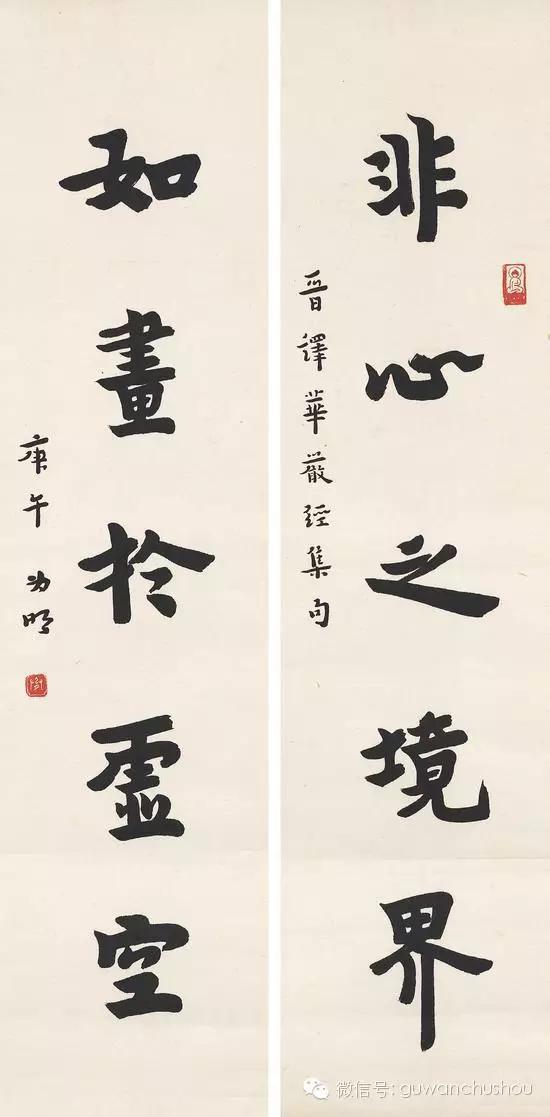 非心之境界
晋譯華嚴經集句
如畫於虛空
庚午為明
微信号: guwanchushou